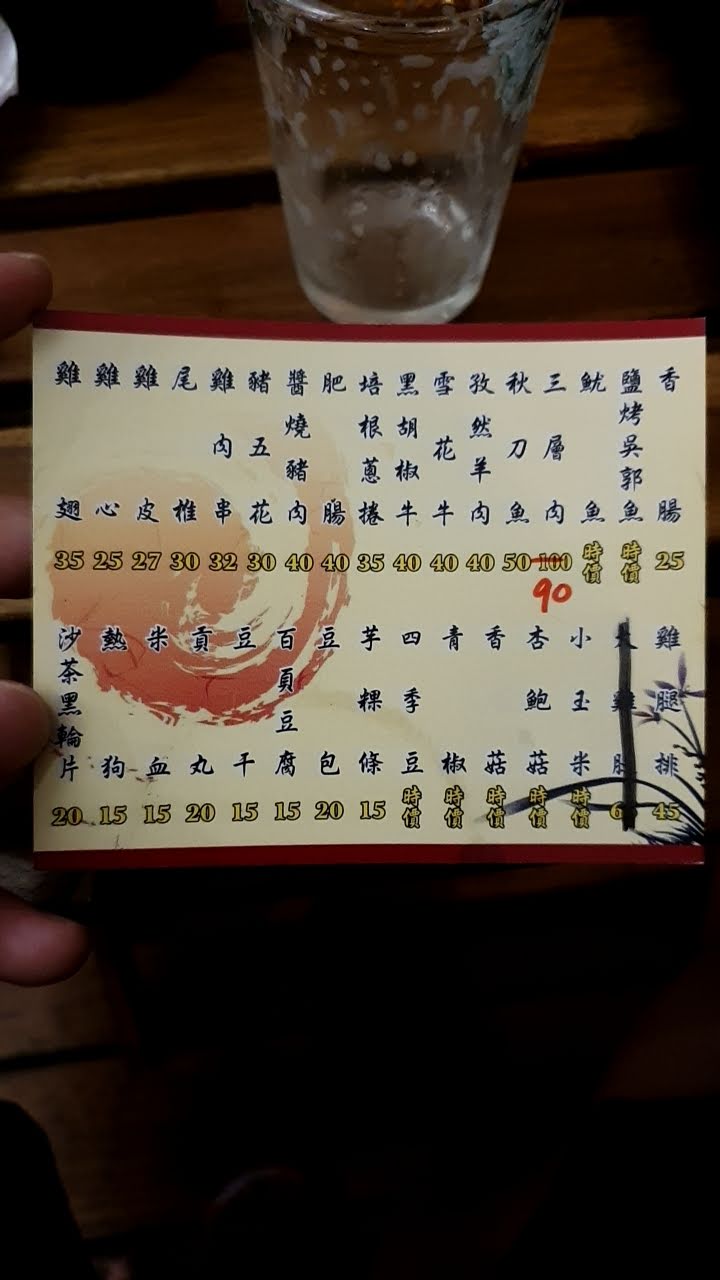 香腸 25
鹽烤吳郭魚 時價
魷魚 時價
三層肉 100 90
秋刀魚 50
孜然羊肉 40
雪花牛 40
黑胡椒牛 40
培根蔥捲 35
肥腸 40
醬燒豬肉 40
豬五花 30
雞肉串 32
尾椎 30
雞皮 27
雞心 25
雞翅 35
雞腿排 45
小玉米 時價
杏鮑菇 時價
香菇 時價
青椒 時價
四季豆 時價
芋粿條 15
豆包 20
百頁豆腐 15
豆干 15
貢丸 20
米血 15
熱狗 15
沙茶黑輪片 20